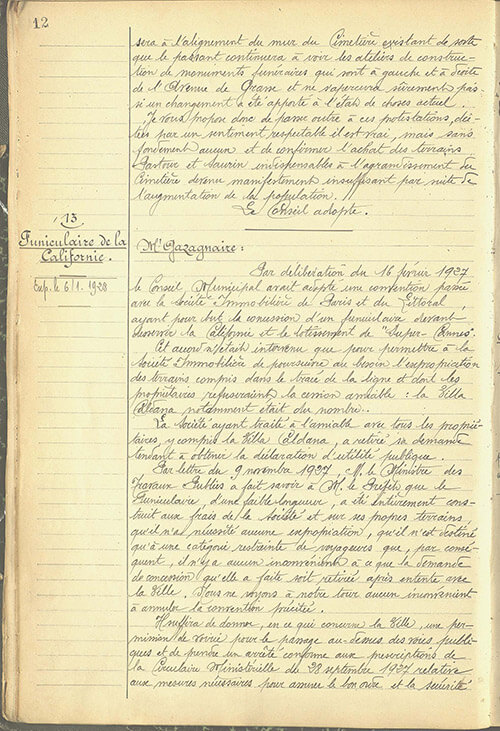 12
sera à l'alignement du mur du Cimetière existant de sorte
que le passant continuera à voir les ateliers de construc-
tion de monuments funéraires qui sont à gauche et à droite
de l'Avenue de Grasse et ne s'apercevra sûrement pas
si un changement a été apporté à l'état de choses actuel.
Je vous propose donc de passer outre à ces protestations, dic-
tées par un sentiment respectable il est vrai, mais sans
fondement aucun et de confirmer l'achat des terrains
Pastour et Maurin indispensables à l'agrandissement du
Cimetière devenu manifestement insuffisant par suite de
l'augmentation de la population.
Le Conseil adopte.
13
Funiculaire de la
Californie.
Exp. le 6/1. 1928
Mr Gazagnaire :
Par délibération du 16 février 1927
le Conseil Municipal avait adopté une convention passée
avec la Société Immobilière de Paris et du Littoral
ayant pour but la concession d'un funiculaire devant
desservir la Californie et le lotissement de "Super-Cannes".
Cet accord n'était intervenu que pour permettre à la
Société Immobilière de poursuivre au besoin l'expropriation
des terrains compris dans le tracé de la ligne et dont les
propriétaires refuseraient la cession amiable : la Villa
Eldana notamment était du nombre.
La Société ayant traité à l'amiable avec tous les proprié-
taires, y compris la Villa Eldana, a retiré sa demande
tendant à obtenir la déclaration d'utilité publique.
Par lettre du 9 novembre 1927, M. le Ministre des
Travaux Publics a fait savoir à M. le Préfet que le
Funiculaire, d'une faible longueur, a été entièrement cons-
truit aux frais de la Société et sur ses propres terrains
qu'il n'a nécessité aucune expropriation, qu'il n'est destiné
qu'à une catégorie restreinte de voyageurs que, par consé-
quent, il n'y a aucun inconvénient à ce que la demande
de concession qu'elle a faite soit retirée après entente avec
la Ville. Nous ne voyons à notre tour aucun inconvénient
à annuler la convention précitée.
Il suffira de donner, en ce qui concerne la Ville, une per-
mission de voirie pour le passage au-dessus des voies publi-
ques et de prendre un arrêté conforme aux prescriptions de
la Circulaire Ministérielle du 28 septembre 1927 relative
aux mesures nécessaires pour assurer le bon ordre et la sécurité